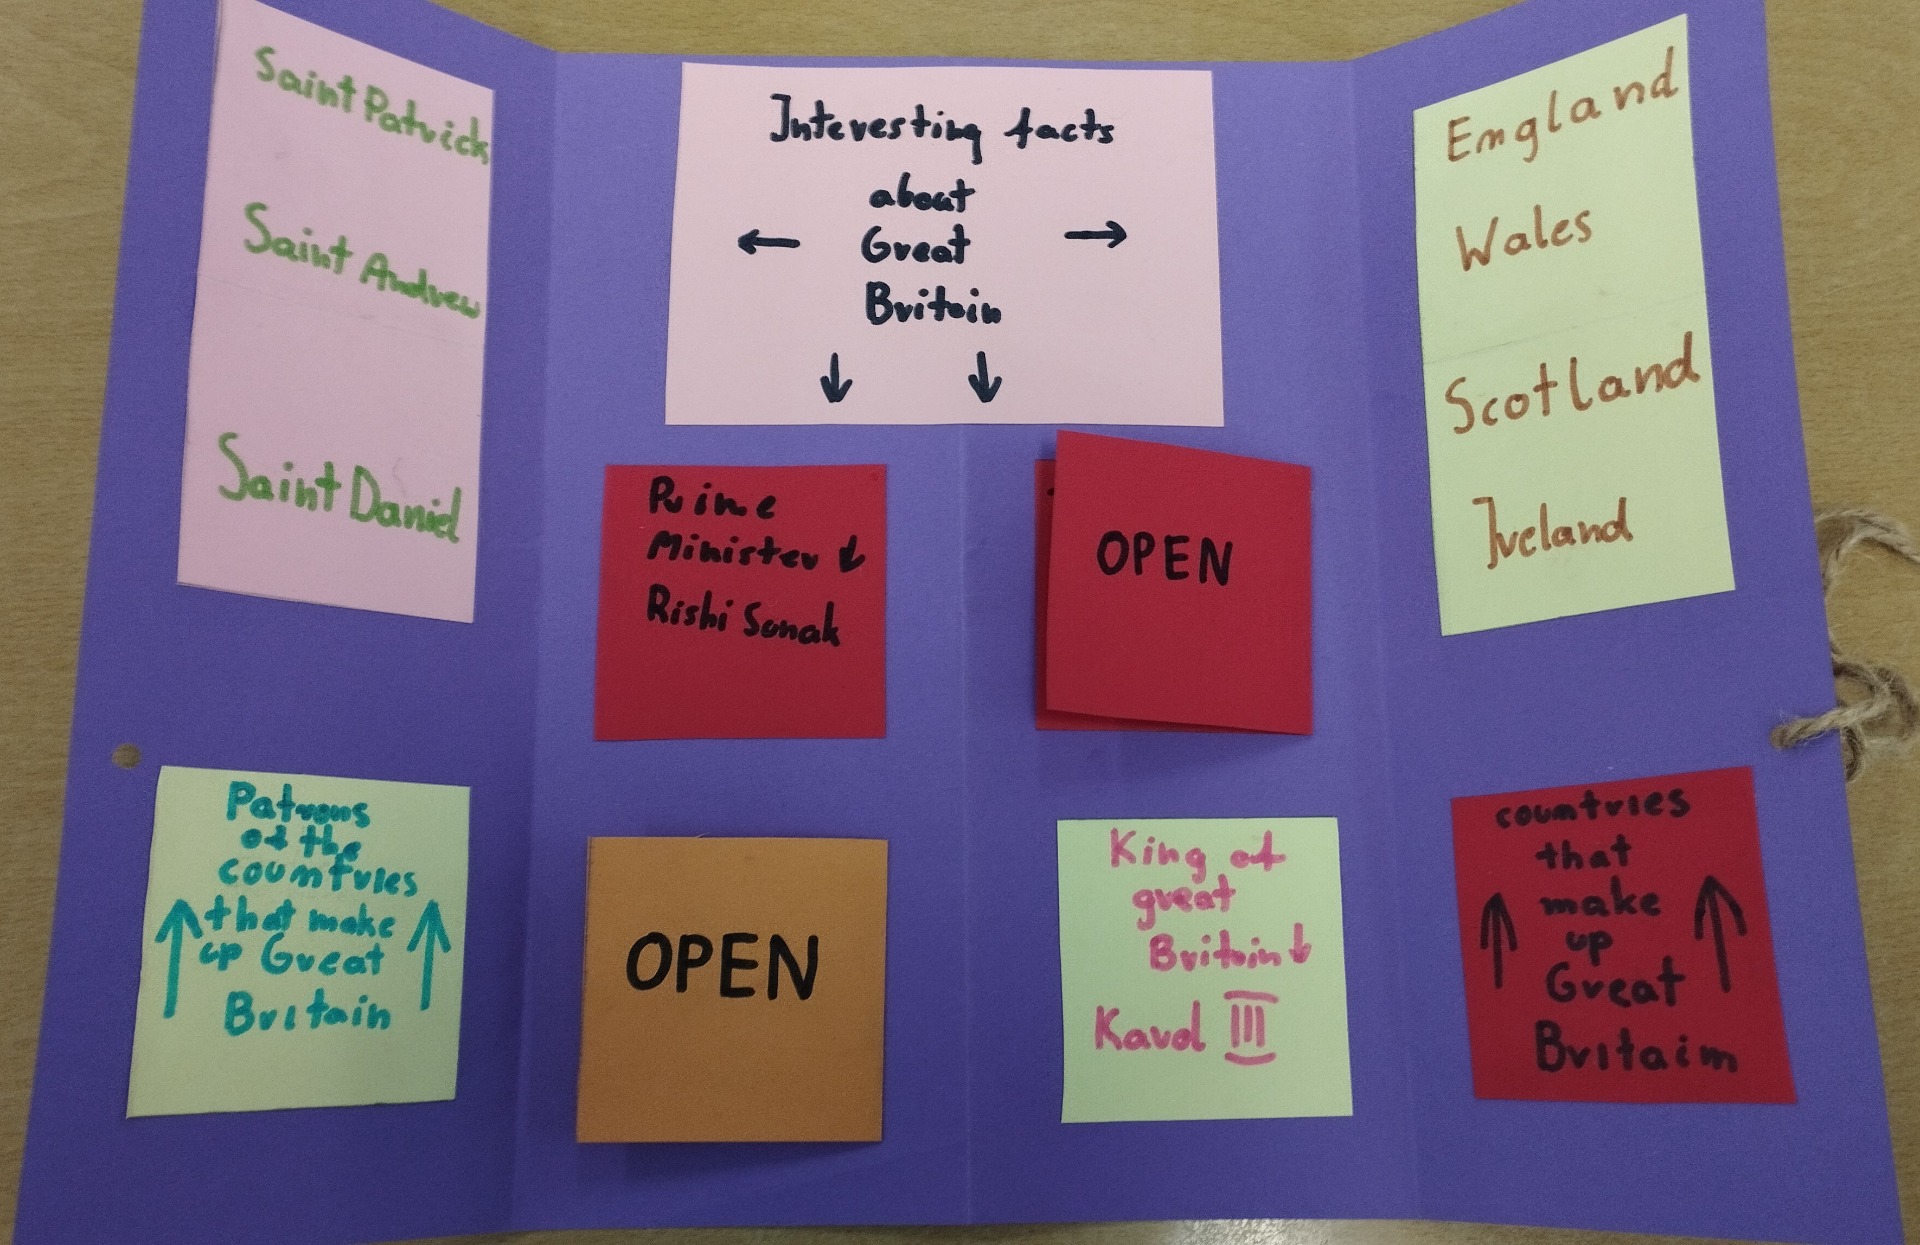 Saint Patrick
Saint Andrew
Saint Daniel
Patrons
of the
countries
that make
up Great
Britain
Interesting facts
about
Great
Britain
Prime
Minister
Rishi Sunak
OPEN
OPEN
King of
great
Britain
Karol III
England
Wales
Scotland
Ireland
countries
that
make
up
Great
Britain